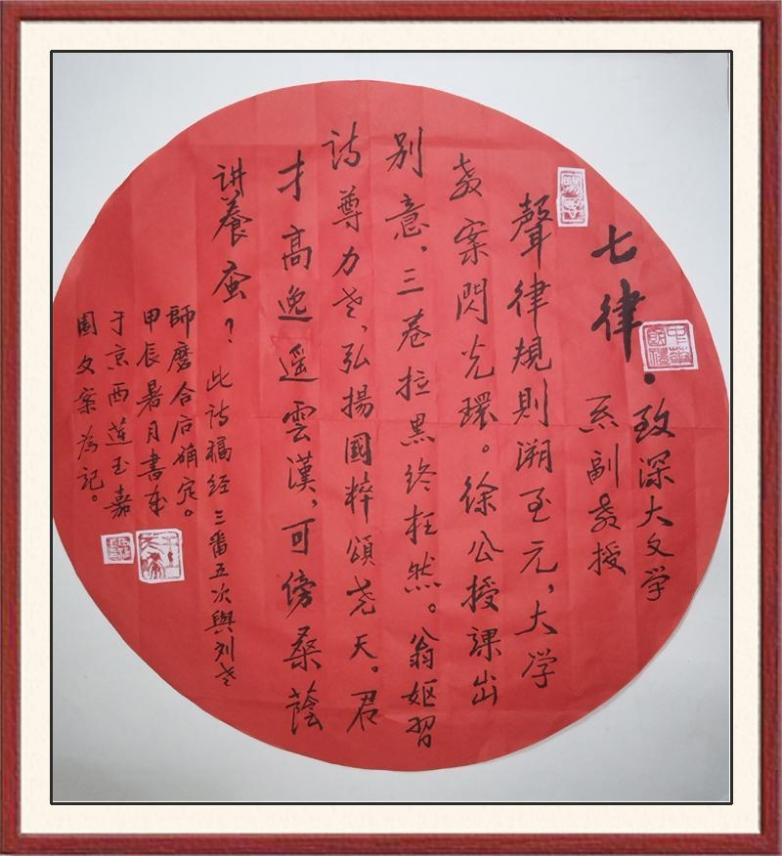 七律·致深大文学
系副教授
聲律規則溯至元，大学
教案閃光環。徐公授課出
别意，三卷拉黑终枉然。翁妪習
诗尊力老、弘揚國粹頌尧天。君
才高逸遥雲漢，可傍桑蔭
讲養蚕？此诗稿经三番五次與刘老
師磨合后确定。
甲辰暑月書
于京西莲玉嘉
園文案为记。